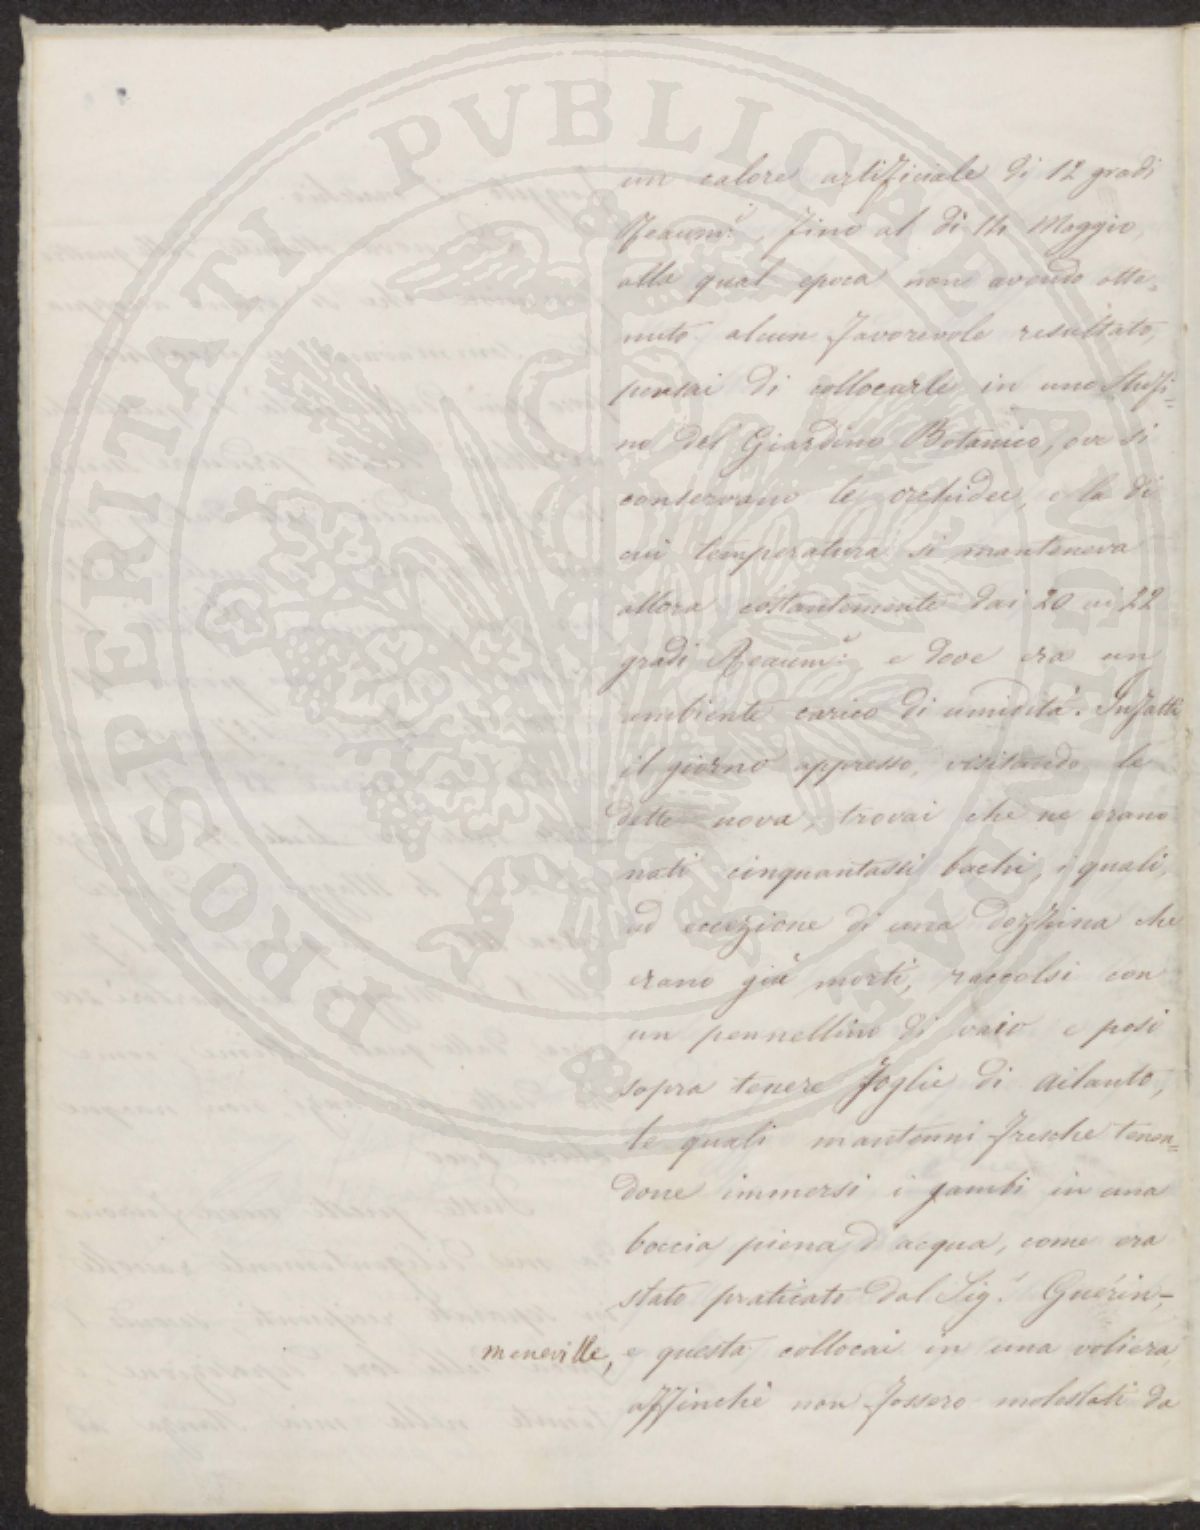 PROSPERITATI PVBLICAE AVGENDAE
un calore artificiale di 12 gradi
Reaum:r, fino al dì 14 Maggio,
alla qual epoca non avendo otte=
nuto alcun favorevole resultato,
pensai di collocarle in uno Stufi=
no del Giardino Botanico, ove si
conservano le orchidee, e la di
cui temperatura si manteneva
allora costantemente dai 20 ai 22
gradi Reaum:r e dove era un
ambiente carico di umidità. Infatti
il giorno appresso, visitando le
dette uova, trovai che ne erano
nati cinquantasei bachi, i quali,
ad eccezione di una dozzina che
erano già morti, raccolsi con
un pennellino di vaio e posi
sopra tenere foglie di ailanto,
le quali mantenni fresche tenen=
done immersi i gambi in una
boccia piena d'acqua, come era
stato praticato dal Sig.r Guérin-
meneville, e questa collocai in una voliera
affinchè non fossero molestati da